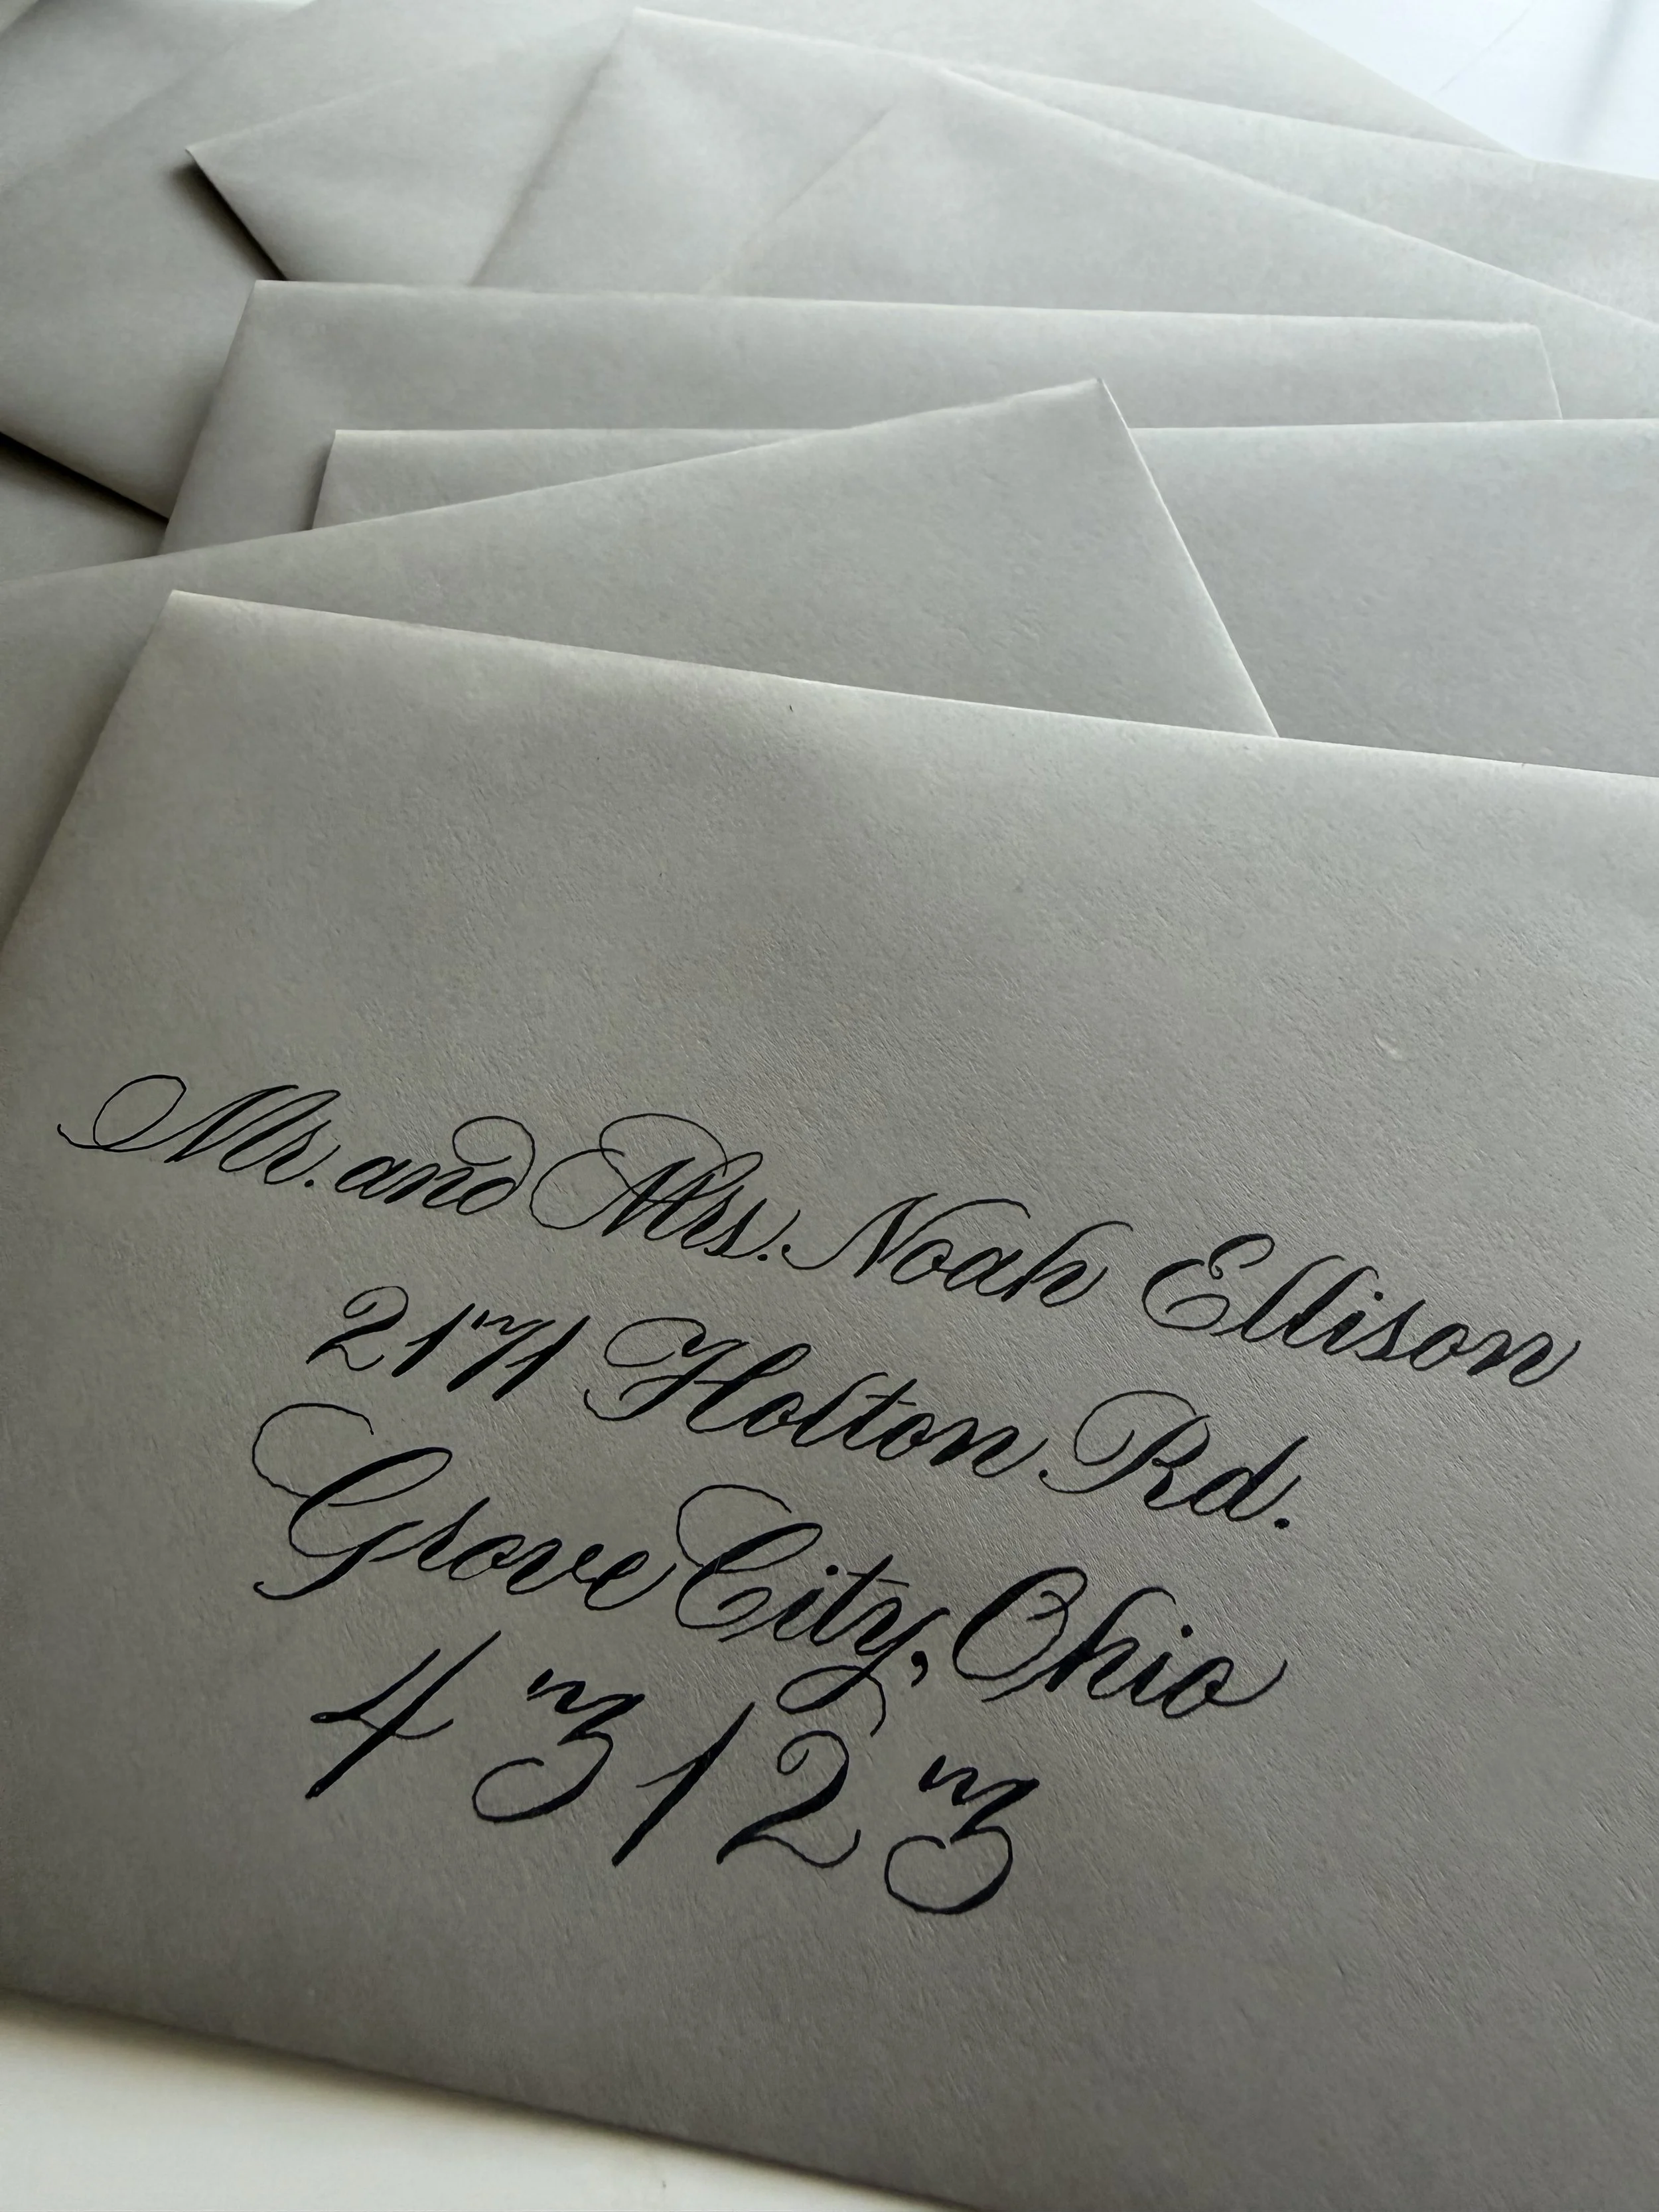 Mr. and Mrs. Noah Ellison
2171 Holton Rd.
Grove City, Ohio
43123